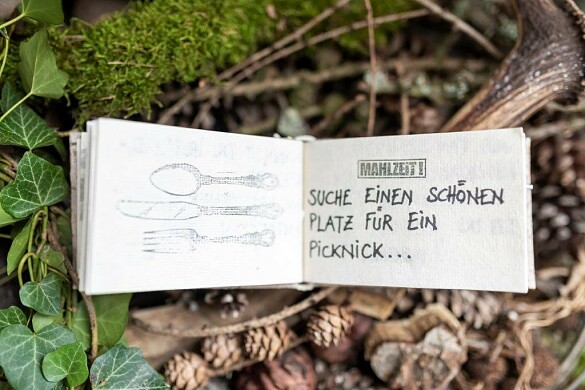 MAHLZEIT!
SUCHE EINEN SCHÖNEN
PLATZ FÜR EIN
PICKNICK...